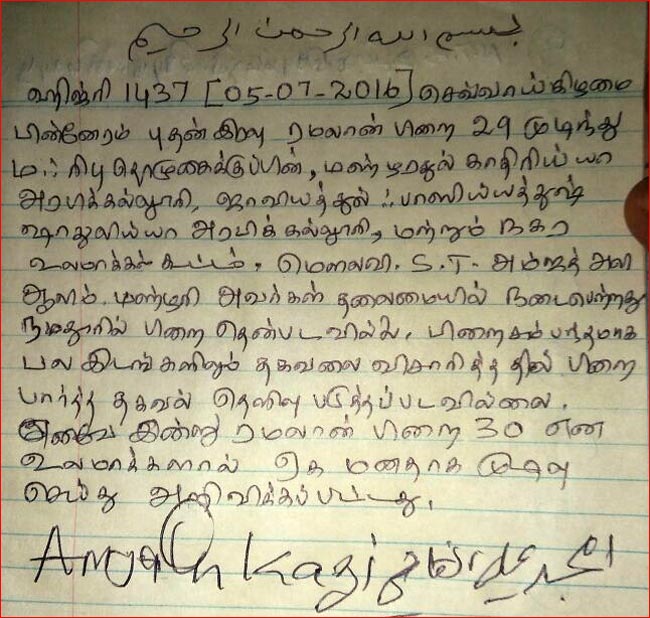 بسم الله الرحمن الرحيم
ஹிஜ்ரி 1437 [05-07-2016] செவ்வாய்கிழமை
பின்னேரம் புதன் இரவு ரமலான் பிறை 29 முடிந்து
மஃரிபு தொழுகைக்குப்பின், மன்ழரதுல் காதிரிய்யா
அரபிக்கல்லூரி, ஜாவியத்துல் ஃபாஸிய்யத்துஷ்
ஷாதுலிய்யா அரபிக் கல்லூரி, மற்றும் நகர
உலமாக்கள் கூட்டம், மௌலவி. S.T. அம்ஜத் அலி
ஆலிம். மன்ழரி அவர்கள் தலைமையில் நடைபெற்றது
நமதூரில் பிறை தென்படவில்லை, பிறை சம்பந்தமாக
பல இடங்களிலும் தகவலை விசாரித்ததில் பிறை
பார்த்த தகவல் தெளிவு படுத்தப்படவில்லை.
எனவே இன்று ரமலான் பிறை 30 என
உலமாக்களால் ஏக மனதாக முடிவு
செய்து அறிவிக்கப்பட்டது.